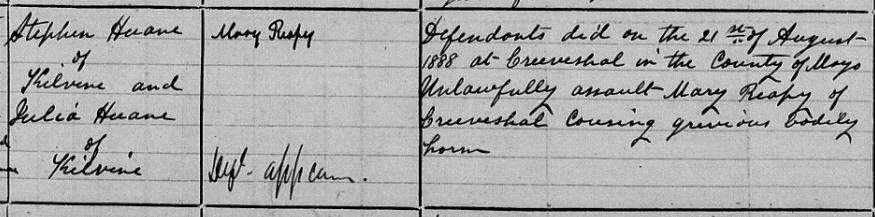 Stephen Huane
of
Kilvine and
Julia Huane
of
Kilvine
Mary Reapy
Deft. appear.
Defendants did on the 21st of August
1888 at Creeveshal in the County of Mayo
Unlawfully assault Mary Reapy of
Creeveshal Causing grevious bodily
harm